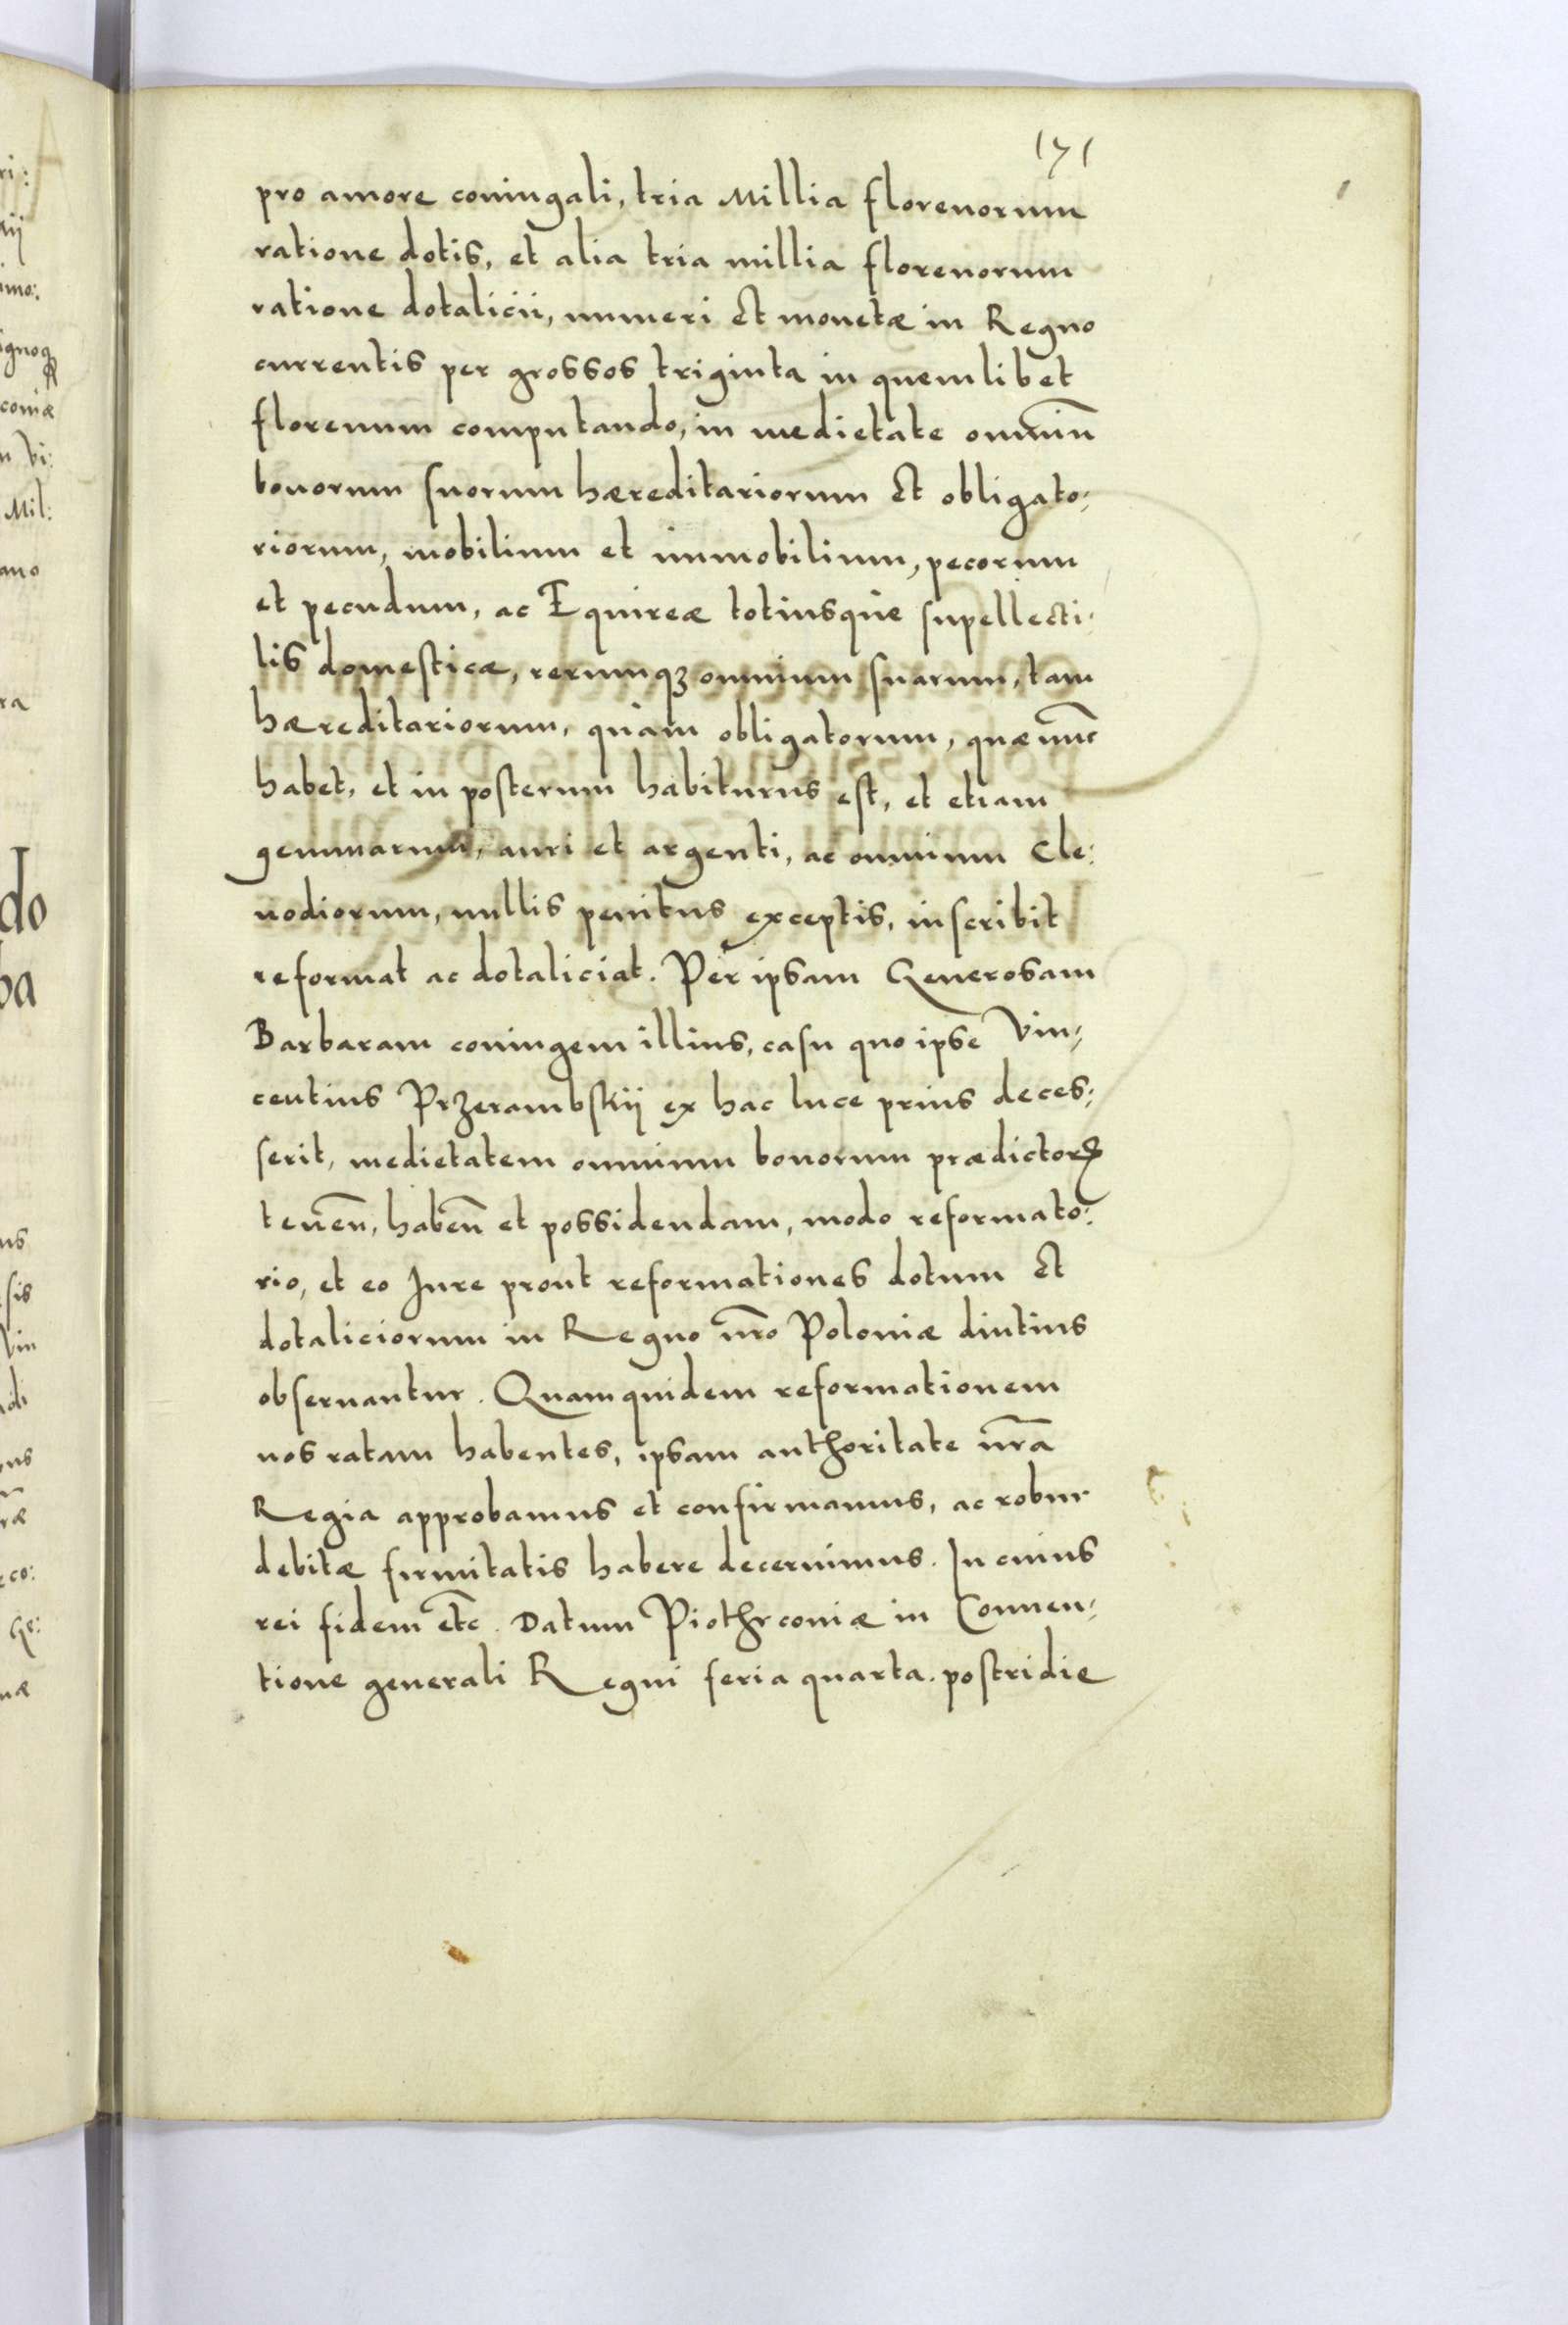 171
pro amore coniugali, tria Millia florenorum
ratione dotis, et alia tria millia florenorum
ratione dotalicii, numeri et monetæ in Regno
currentis per grossos triginta in quemlibet
florenum computando, in medietate omniũ
bonorum suorum hæreditariorum et obligato:
riorum, mobilium et immobilium, pecorum
et pecudum, ac Equireæ totiusque supellecti:
lis domesticæ, rerumqꝫ omnium suarum, tam
hæreditariorum, quàm obligatorum, quæ nũc
habet, et in posterum habiturus est, et etiam
gemmarum, auri et argenti, ac omnium Cle:
nodiorum, nullis penitus exceptis, inscribit
reformat ac dotaliciat. Per ipsam Generosam
Barbaram coniugem illius, casu quo ipse Vin:
centius Przerambskij ex hac luce prius deces:
serit, medietatem omnium bonorum prædictorꝝ
teneñ, habeñ et possidendam, modo reformato:
rio, et eo Jure prout reformationes dotum et
dotaliciorum in Regno nr̃o Poloniæ diutius
obseruantur. Quamquidem reformationem
nos ratam habentes, ipsam authoritate nr̃a
Regia approbamus et confirmamus, ac robur
debitæ firmitatis habere decernimus. In cuius
rei fidem etc̃. Datum Piothrconiæ in Conuen:
tione generali Regni feria quarta. postridie